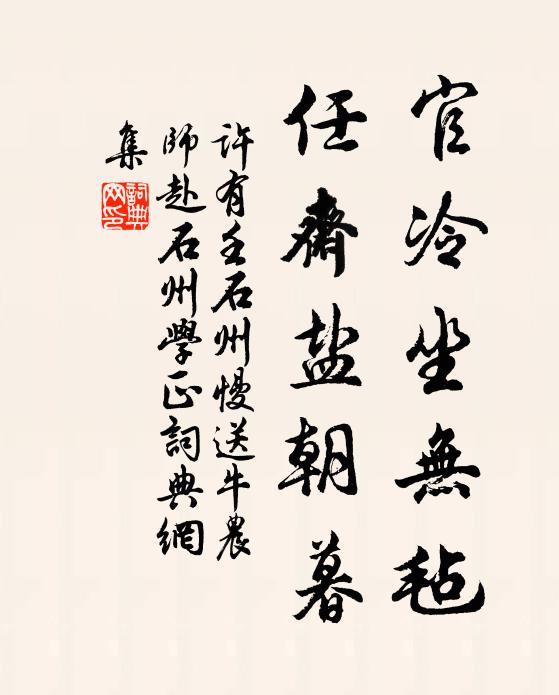 官冷坐無毡
任齋盐朝暮
許有壬石州慢送牛農
師赴石州學正詞典網
集
詞典網印